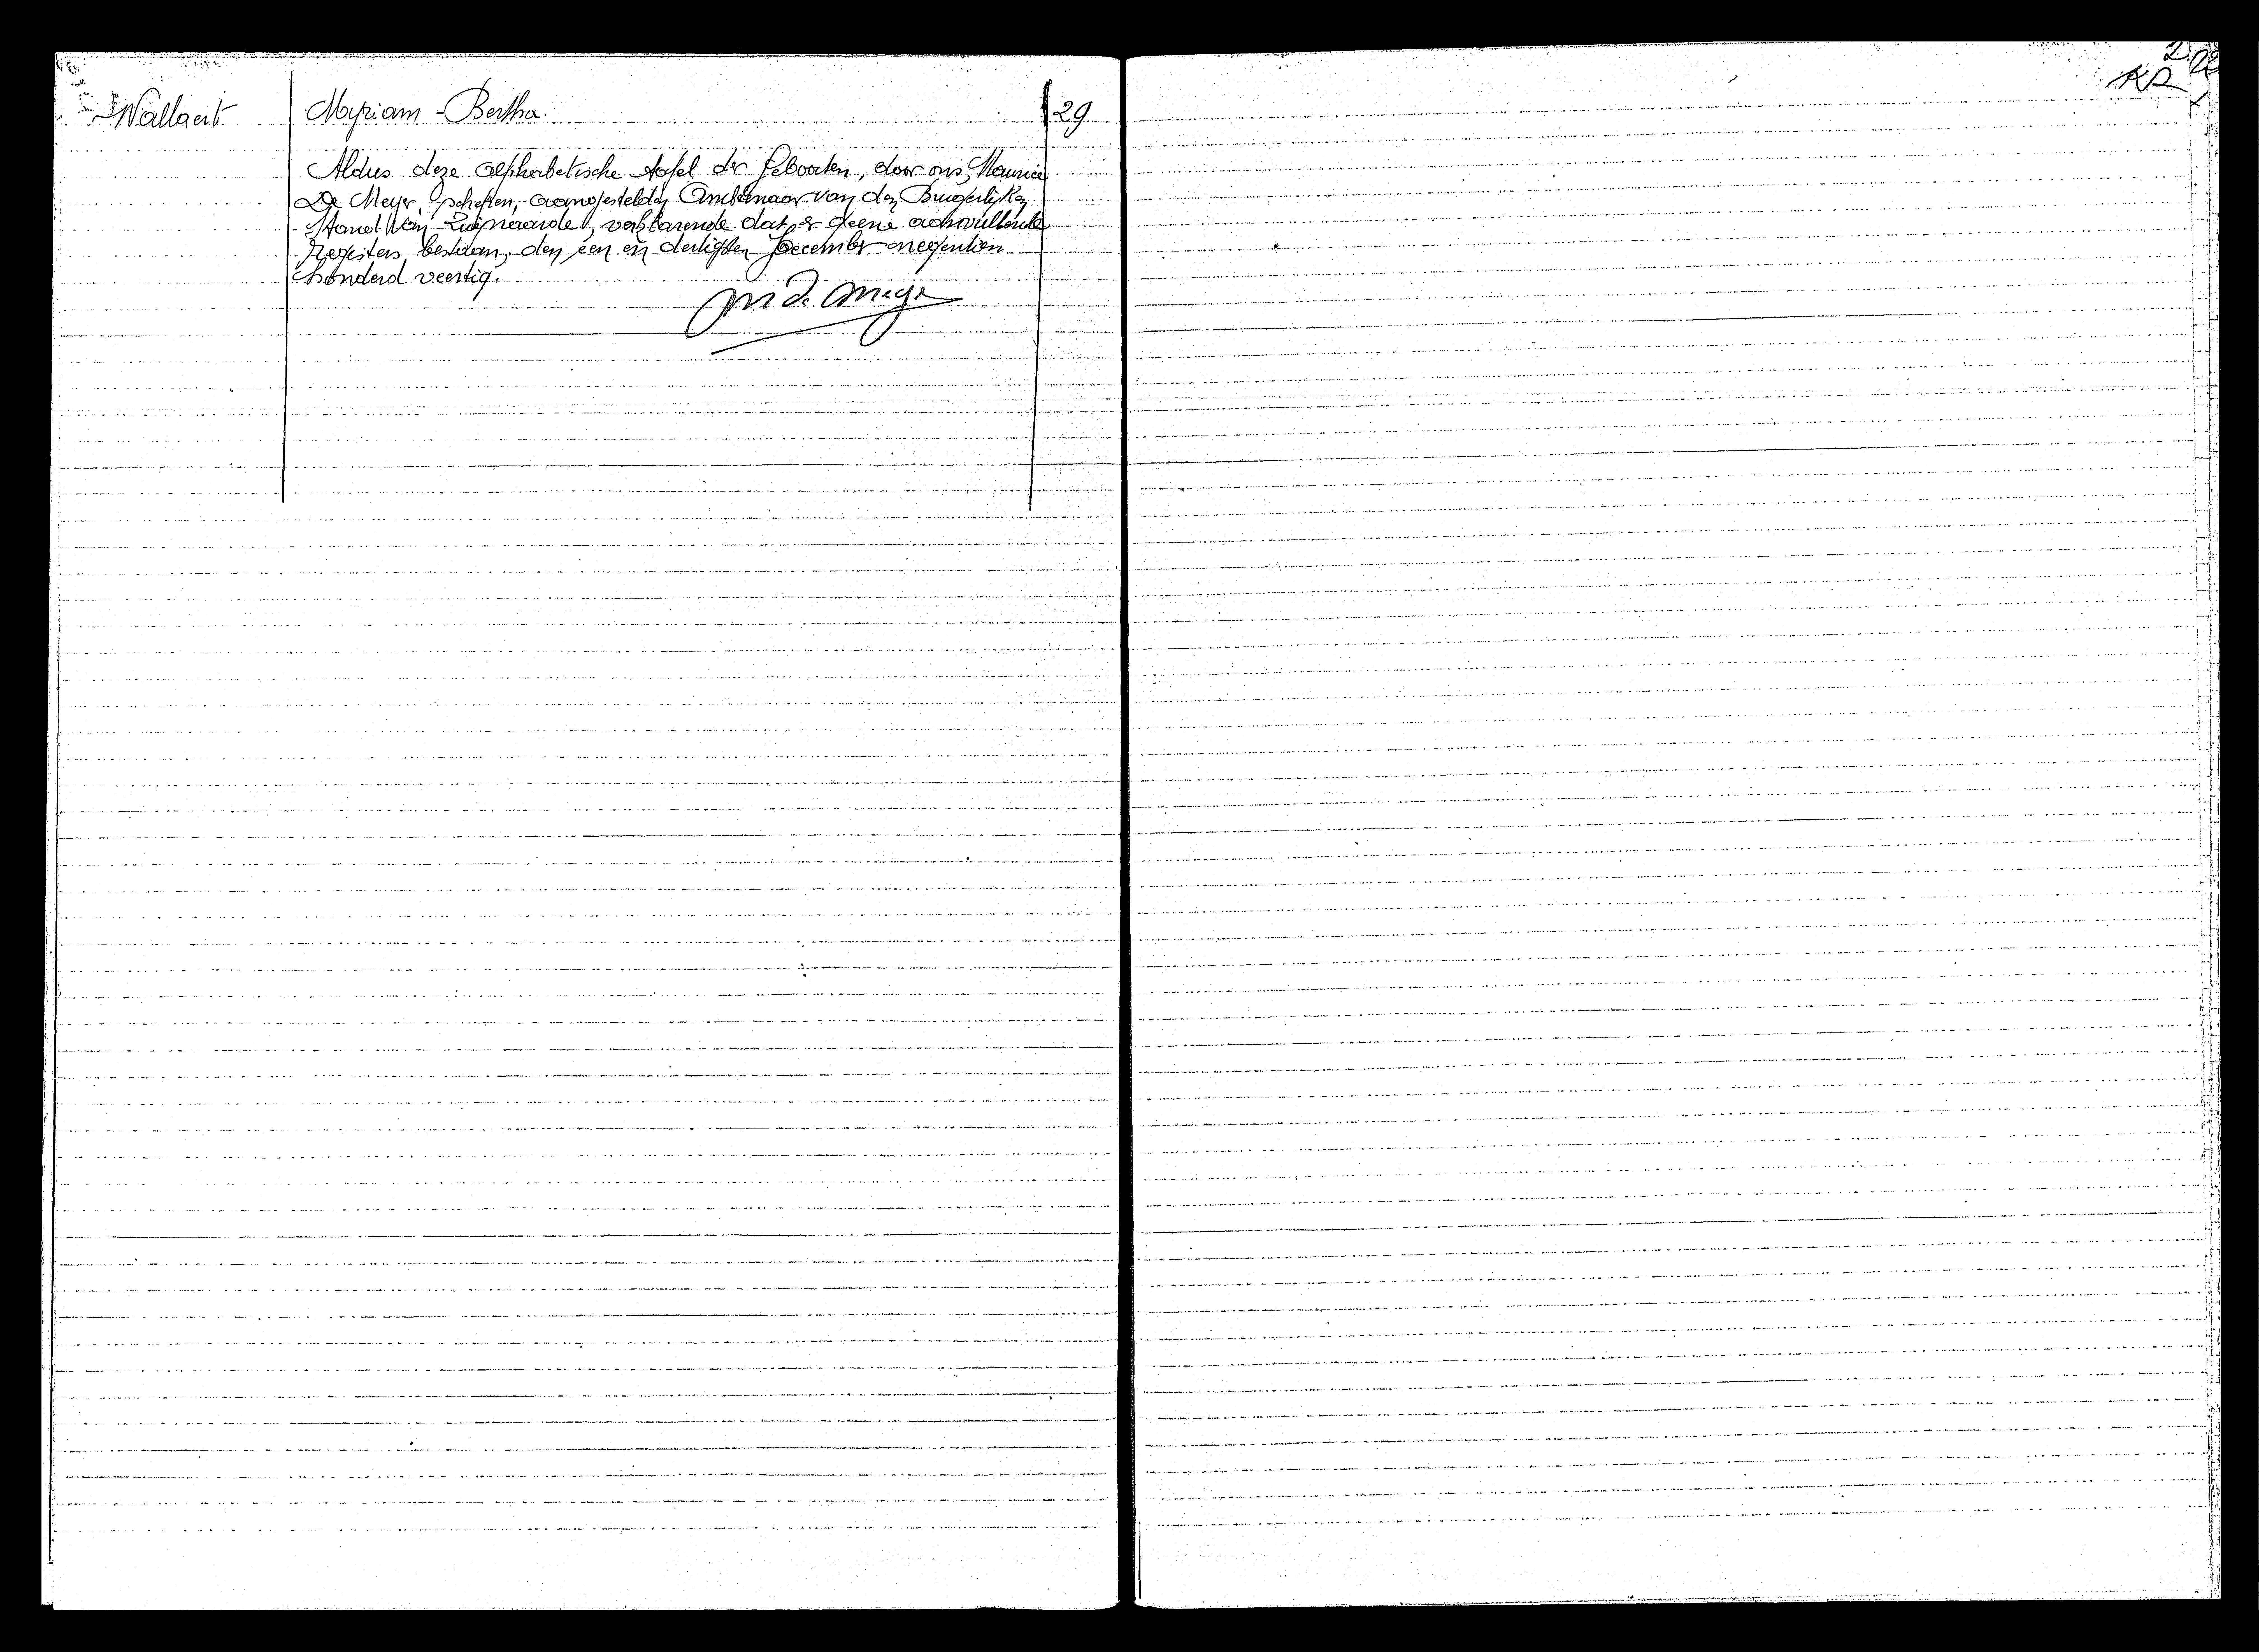 Wallaert Myriam - Bertha. 29
Aldus deze alphabetische tafel der Geboorten, door ons, Maurice
De Meyer, Schepen, aangestelden Ambtenaar van den Burgerlijken
Stand van Zwijnaarde, verklarende dat er geene aanvullende
Registers bestaan, den een en dertigsten December negentien
honderd veertig.
M De Meyer